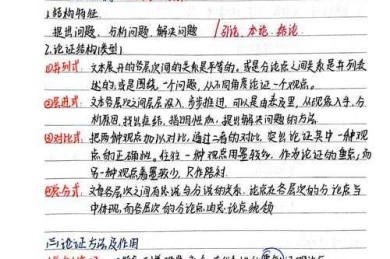 1.结构特征
提出问题、分析问题、解决问题 引论、本论、结论
2.论证结构类型:
①并列式:文本展开的各层次间的关系是平等的。或是分论点之间关系是并列表
达的,或是围绕一个问题,从不同角度论证一个观点。
②层进式:文本各层次之间层层深入,步步推进,可以是由表及里,从现象入手,分
析原因,找出症结,指明性质,提出解决问题的方法。
③对比式:把两种观点加以对比,通过二者的对比,突出论证其中一种观
点的正确性。往往一种观点用墨较多,作为论证的重点,而
另一种观点着墨较少,只作陪衬。
④总分式:文章各层次之间有总说与分说的关系,论点在各层次的分论点
中体现,而各层次的分论点由总论点统领
三、论证方法及作用